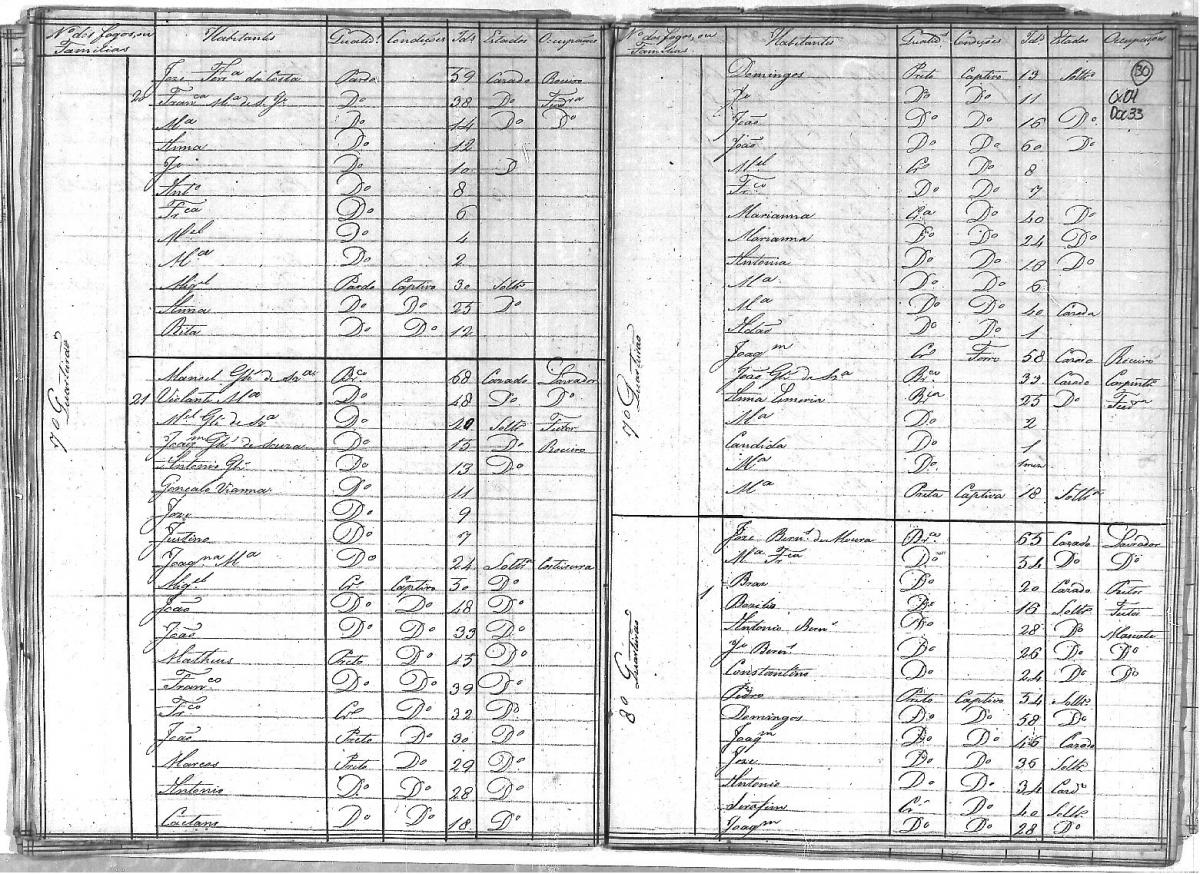 Nos dos fogos, ou Familias Habitantes Qualids Condições Ids Estados Occupações
Joze Ferra da Costa Pardo 59 Cazado Roceiro
20 Franca Ma de S. Do 38 Do
Ma Do 14 Do Do
Anna Do 12
Je Do 10 D
Anto Do 8
Frca Do 6
Mel Do 4
Ma Do 2
Migel Pardo Captivo 30 Solto
Anna Do Do 25 Do
Rita Do Do 12
7o Quarteirão
Manoel de Sza Brco 68 Cazado Lavrador
21 Violante Ma Do 48 Do Do
Mel de Sza Do 20 Solto Feitor
Joaqm de Souza Do 15 Do Roceiro
Antonio Do 13 Do
Gonçalo Vianna Do 11
Joze Do 9
Justino Do 7
Joaqna Ma Do 24 Soltra Costureira
Migel Cro Captivo 50 Do
João Do Do 48 Do
João Do Do 33 Do
Matheus Preto Do 45 Do
Franco Do Do 39 Do
Frco Cro Do 32 Do
João Preto Do 30 Do
Marcos Preto Do 29 Do
Antonio Do Do 28 Do
Caetano Do Do 18 Do
Nos dos fogos, ou Familias Habitantes Qualids Condições Ids Estados Occupações
30
Cx 04
Doc 33
Domingos Preto Captivo 13 Solto
Je Do Do 11
João Do Do 16 Do
João Do Do 60 Do
Mel Cro Do 8
Frco Do Do 7
Marianna Cra Do 40 Do
Marianna Do Do 24 Do
Antonia Do Do 18 Do
Ma Do Do 6
Ma Do Do 40 Cazada
Adão Do Do 1
Joaqm Cro Forro 58 Cazado Roceiro
7o Quarteirão
João de Sza Brco 33 Cazado
Anna Brca 25 Do
Ma Do 2
Candida Do 1
Ma Do 1mez
Ma Preta Captiva 18 Soltra
Joze de Moura Bro 65 Cazado Lavrador
Ma Fra Do 54 Do Do
1 Braz Do 20 Cazado Feitor
Bazilio Do 16 Solto Feitor
Antonio Do 28 Do
Je Do 26 Do Do
Constantino Do 24 Do Do
8o Quarteirão
Pedro Preto Captivo 54 Solto
Domingos Do Do 58 Do
Joaqm Do Do 46 Cazado
Joze Do Do 36 Solto
Antonio Do Do 34 Cardo
Serafim Cro Do 40 Solto
Joaqm Do Do 28 Do